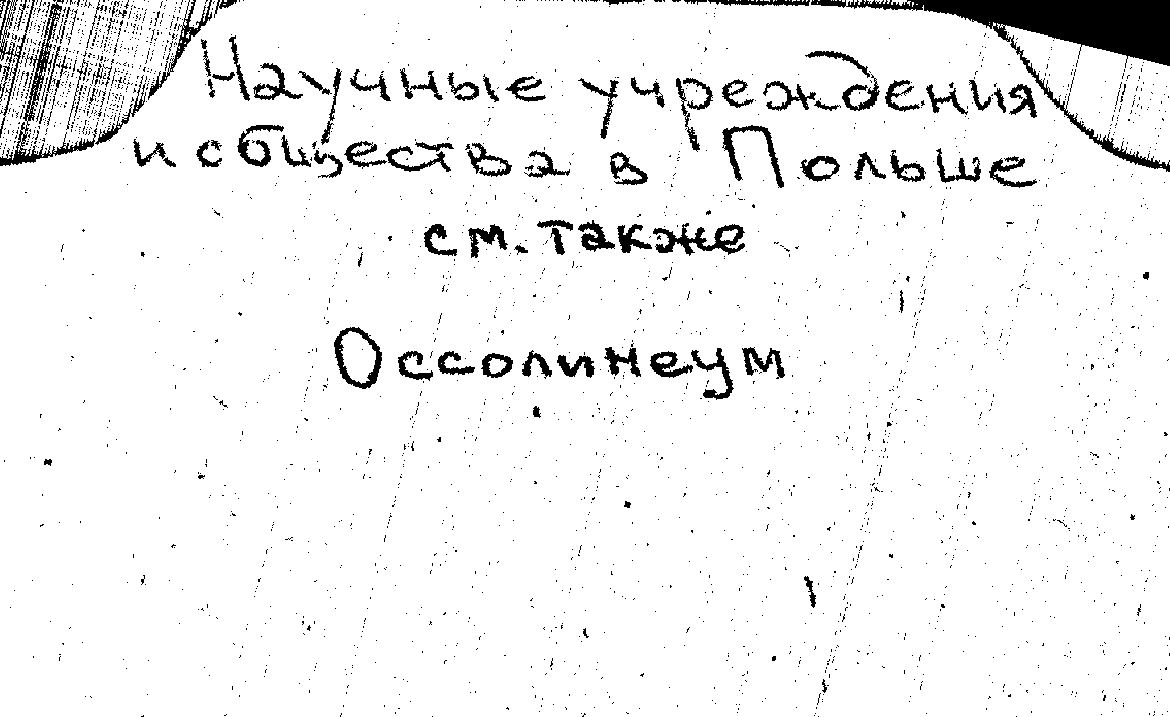 Научные учреждения
и общества в Польше
см. также
Оссолинеум